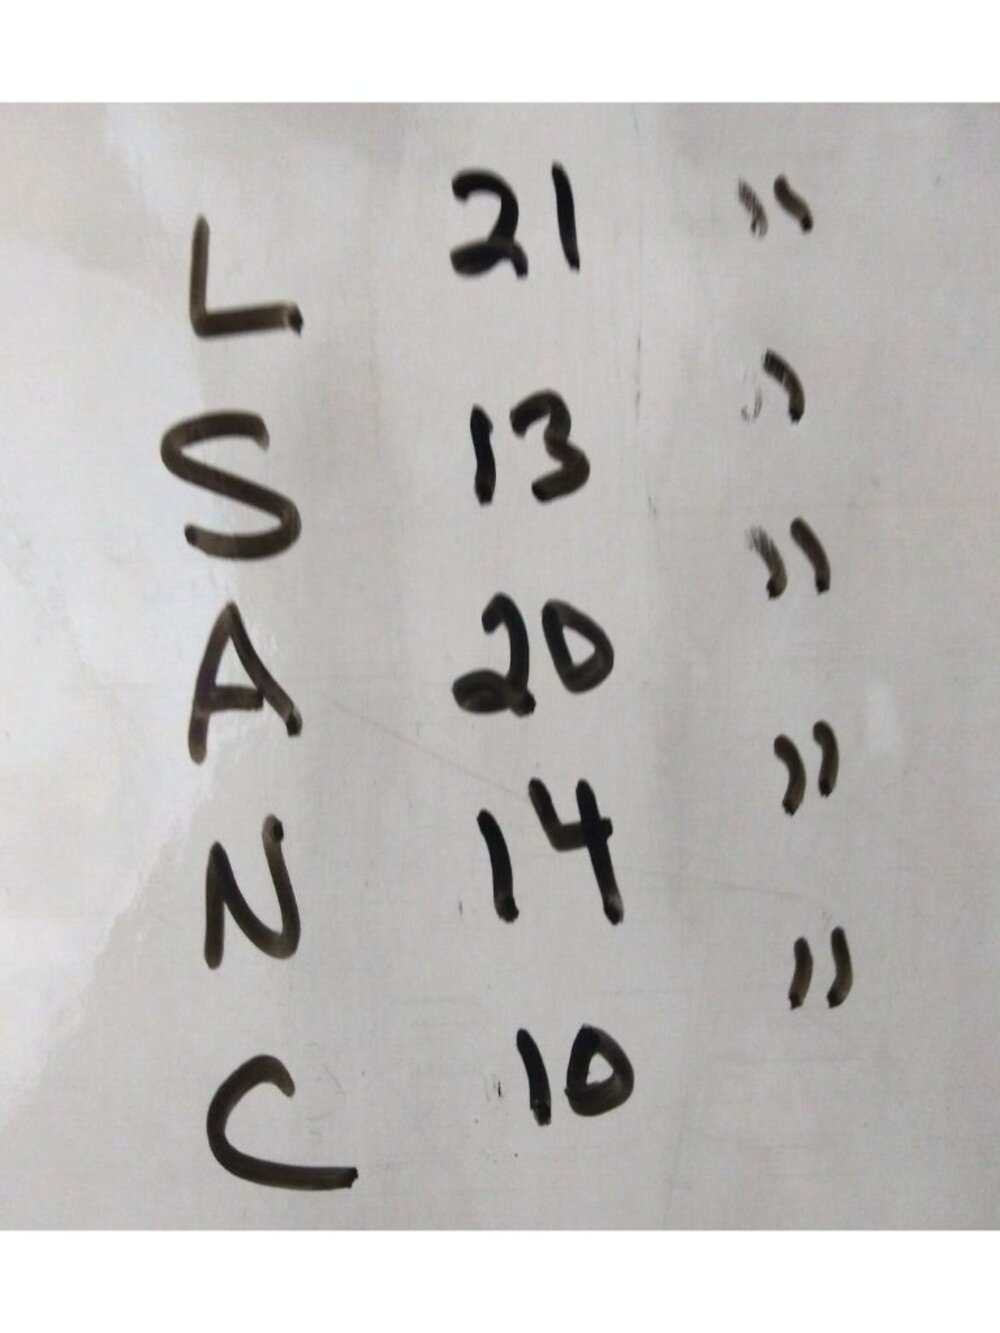 L 21 "
S 13 "
A 20 "
N 14 "
C 10 "